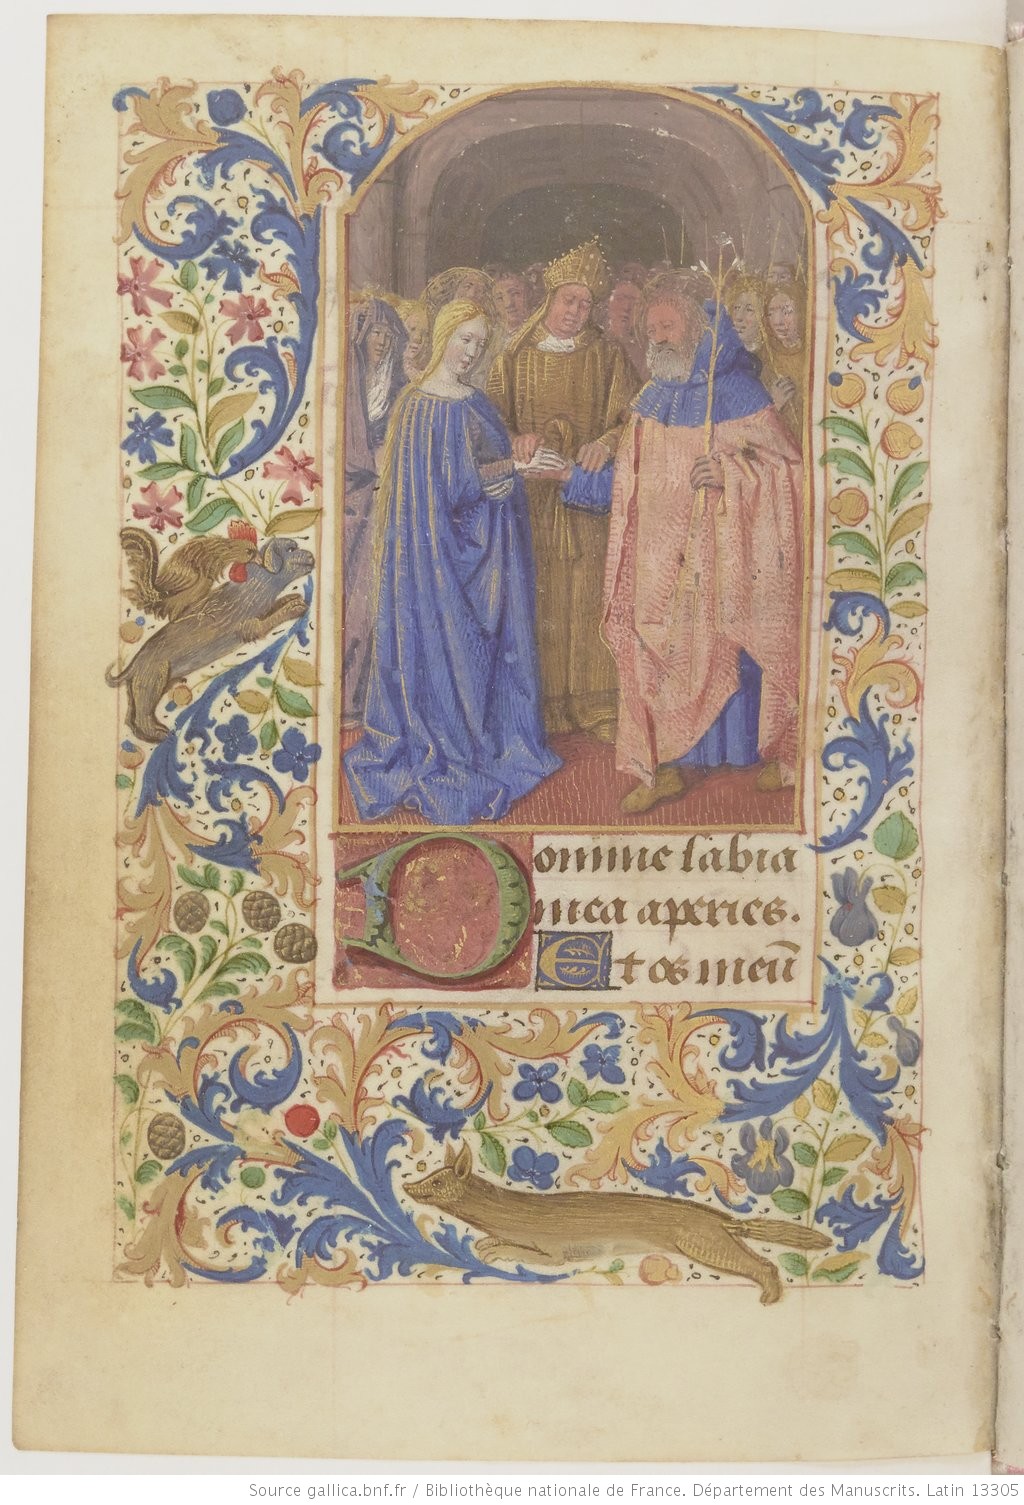 Domine labia
mea aperies.
Et os meū
Source gallica.bnf.fr / Bibliothèque nationale de France. Département des Manuscrits. Latin 13305